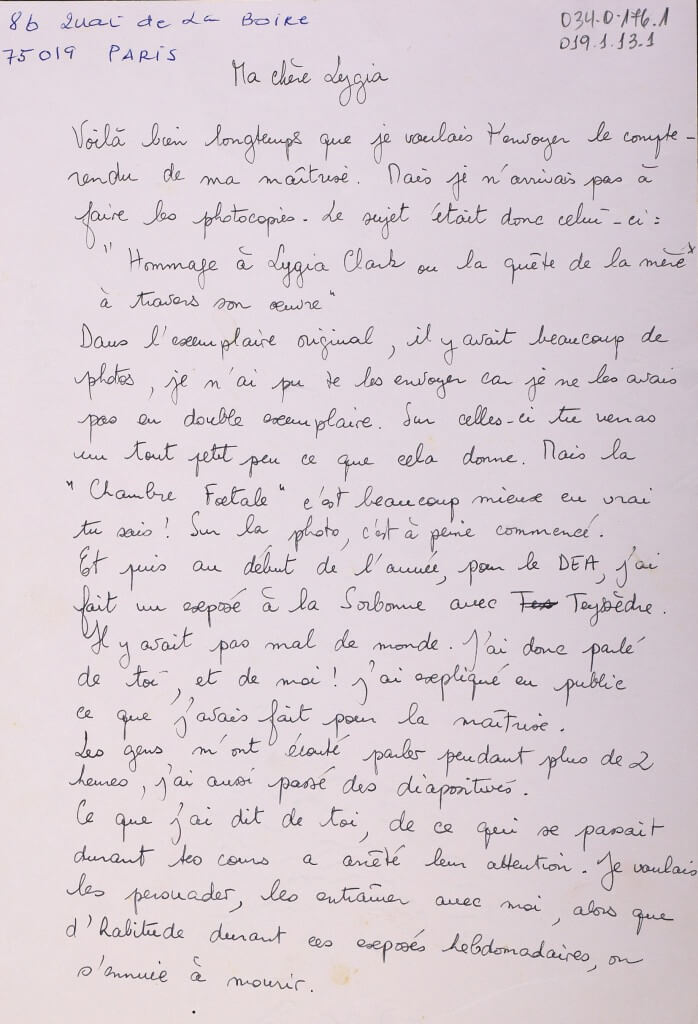 86 Quai de La Boire
75019 PARIS
034.0.176.1
019.1.13.1
Ma chère Lygia
Voilà bien longtemps que je voulais t'envoyer le compte-
rendu de ma maîtrise. Mais je n'arrivais pas à
faire les photocopies. Le sujet était donc celui-ci :
" Hommage à Lygia Clark ou la quête de la mère
à travers son œuvre"
Dans l'exemplaire original, il y avait beaucoup de
photos, je n'ai pu te les envoyer car je ne les avais
pas en double exemplaire. Sur celles-ci tu verras
un tout petit peu ce que cela donne. Mais la
"Chambre Fœtale" c'est beaucoup mieux en vrai
tu sais ! Sur la photo, c'est à peine commencé.
Et puis au début de l'année, pour le DEA, j'ai
fait un exposé à la Sorbonne avec Teyssèdre.
Il y avait pas mal de monde. J'ai donc parlé
de toi, et de moi ! j'ai expliqué en public
ce que j'avais fait pour la maîtrise.
Les gens m'ont écouté parler pendant plus de 2
heures, j'ai aussi passé des diapositives.
Ce que j'ai dit de toi, de ce qui se passait
durant tes cours a arrêté leur attention. Je voulais
les persuader, les entraîner avec moi, alors que
d'habitude durant ces exposés hebdomadaires, on
s'ennuie à mourir.